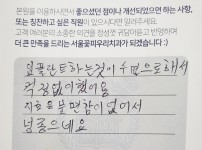 본원을 이용하시면서 좋으셨던 점이나 개선되었으면 하는 사항,
또는 칭찬하고 싶은 직원이 있으시다면 알려주세요.
고객 여러분의 소중한 의견을 정성껏 귀담아듣고 반영하여
더 큰 만족을 드리는 서울꽃피우리치과가 되겠습니다 :)
임플란트 하는것이 수면으로해서
걱정없이했어용
치료 불편함이 없어서
넘좋으네요